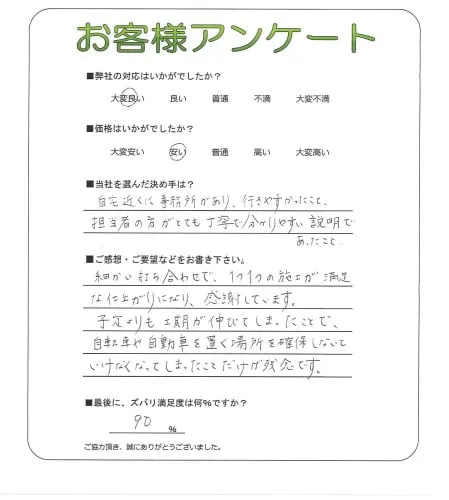 お客様アンケート
■弊社の対応はいかがでしたか？
大変良い 良い 普通 不満 大変不満
■価格はいかがでしたか？
大変安い 安い 普通 高い 大変高い
■当社を選んだ決め手は？
自宅近くに事務所があり、行きやすかったこと、
担当者の方がとても丁寧で分かりやすい説明で
あったこと。
■ご感想・ご要望などをお書き下さい。
細かい打ち合わせで、1つ1つの施工が満足
な仕上がりになり、感謝しています。
予定よりも工期が伸びてしまったことで、
自転車や自動車を置く場所を確保しないと
いけなくなってしまったことだけが残念です。
■最後に、ズバリ満足度は何%ですか？
90 %
ご協力頂き、誠にありがとうございました。